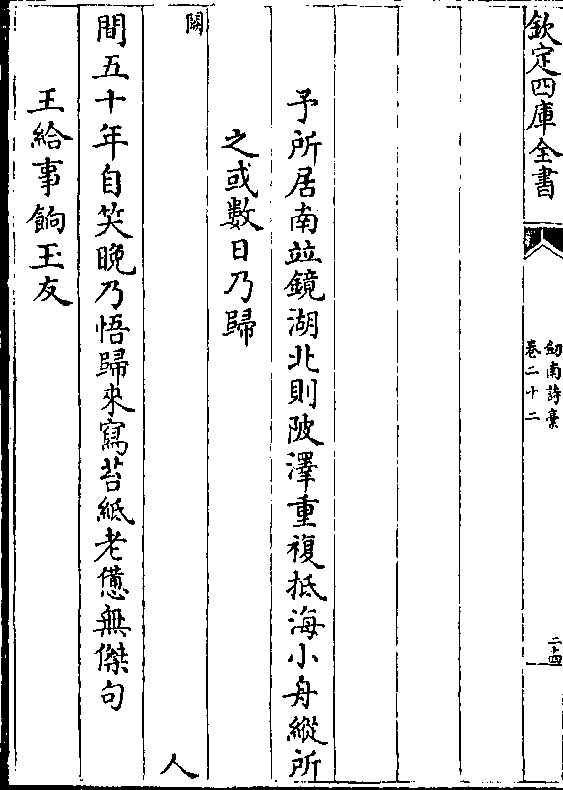 欽定四庫全書
劒南詩稾
卷二十二
二十四
予所居南竝鏡湖北則陂澤重複抵海小舟縱所
之或數日乃歸
闕 人
間五十年自笑晩乃悟歸來寫苔紙老憊無傑句
王給事餉玉友